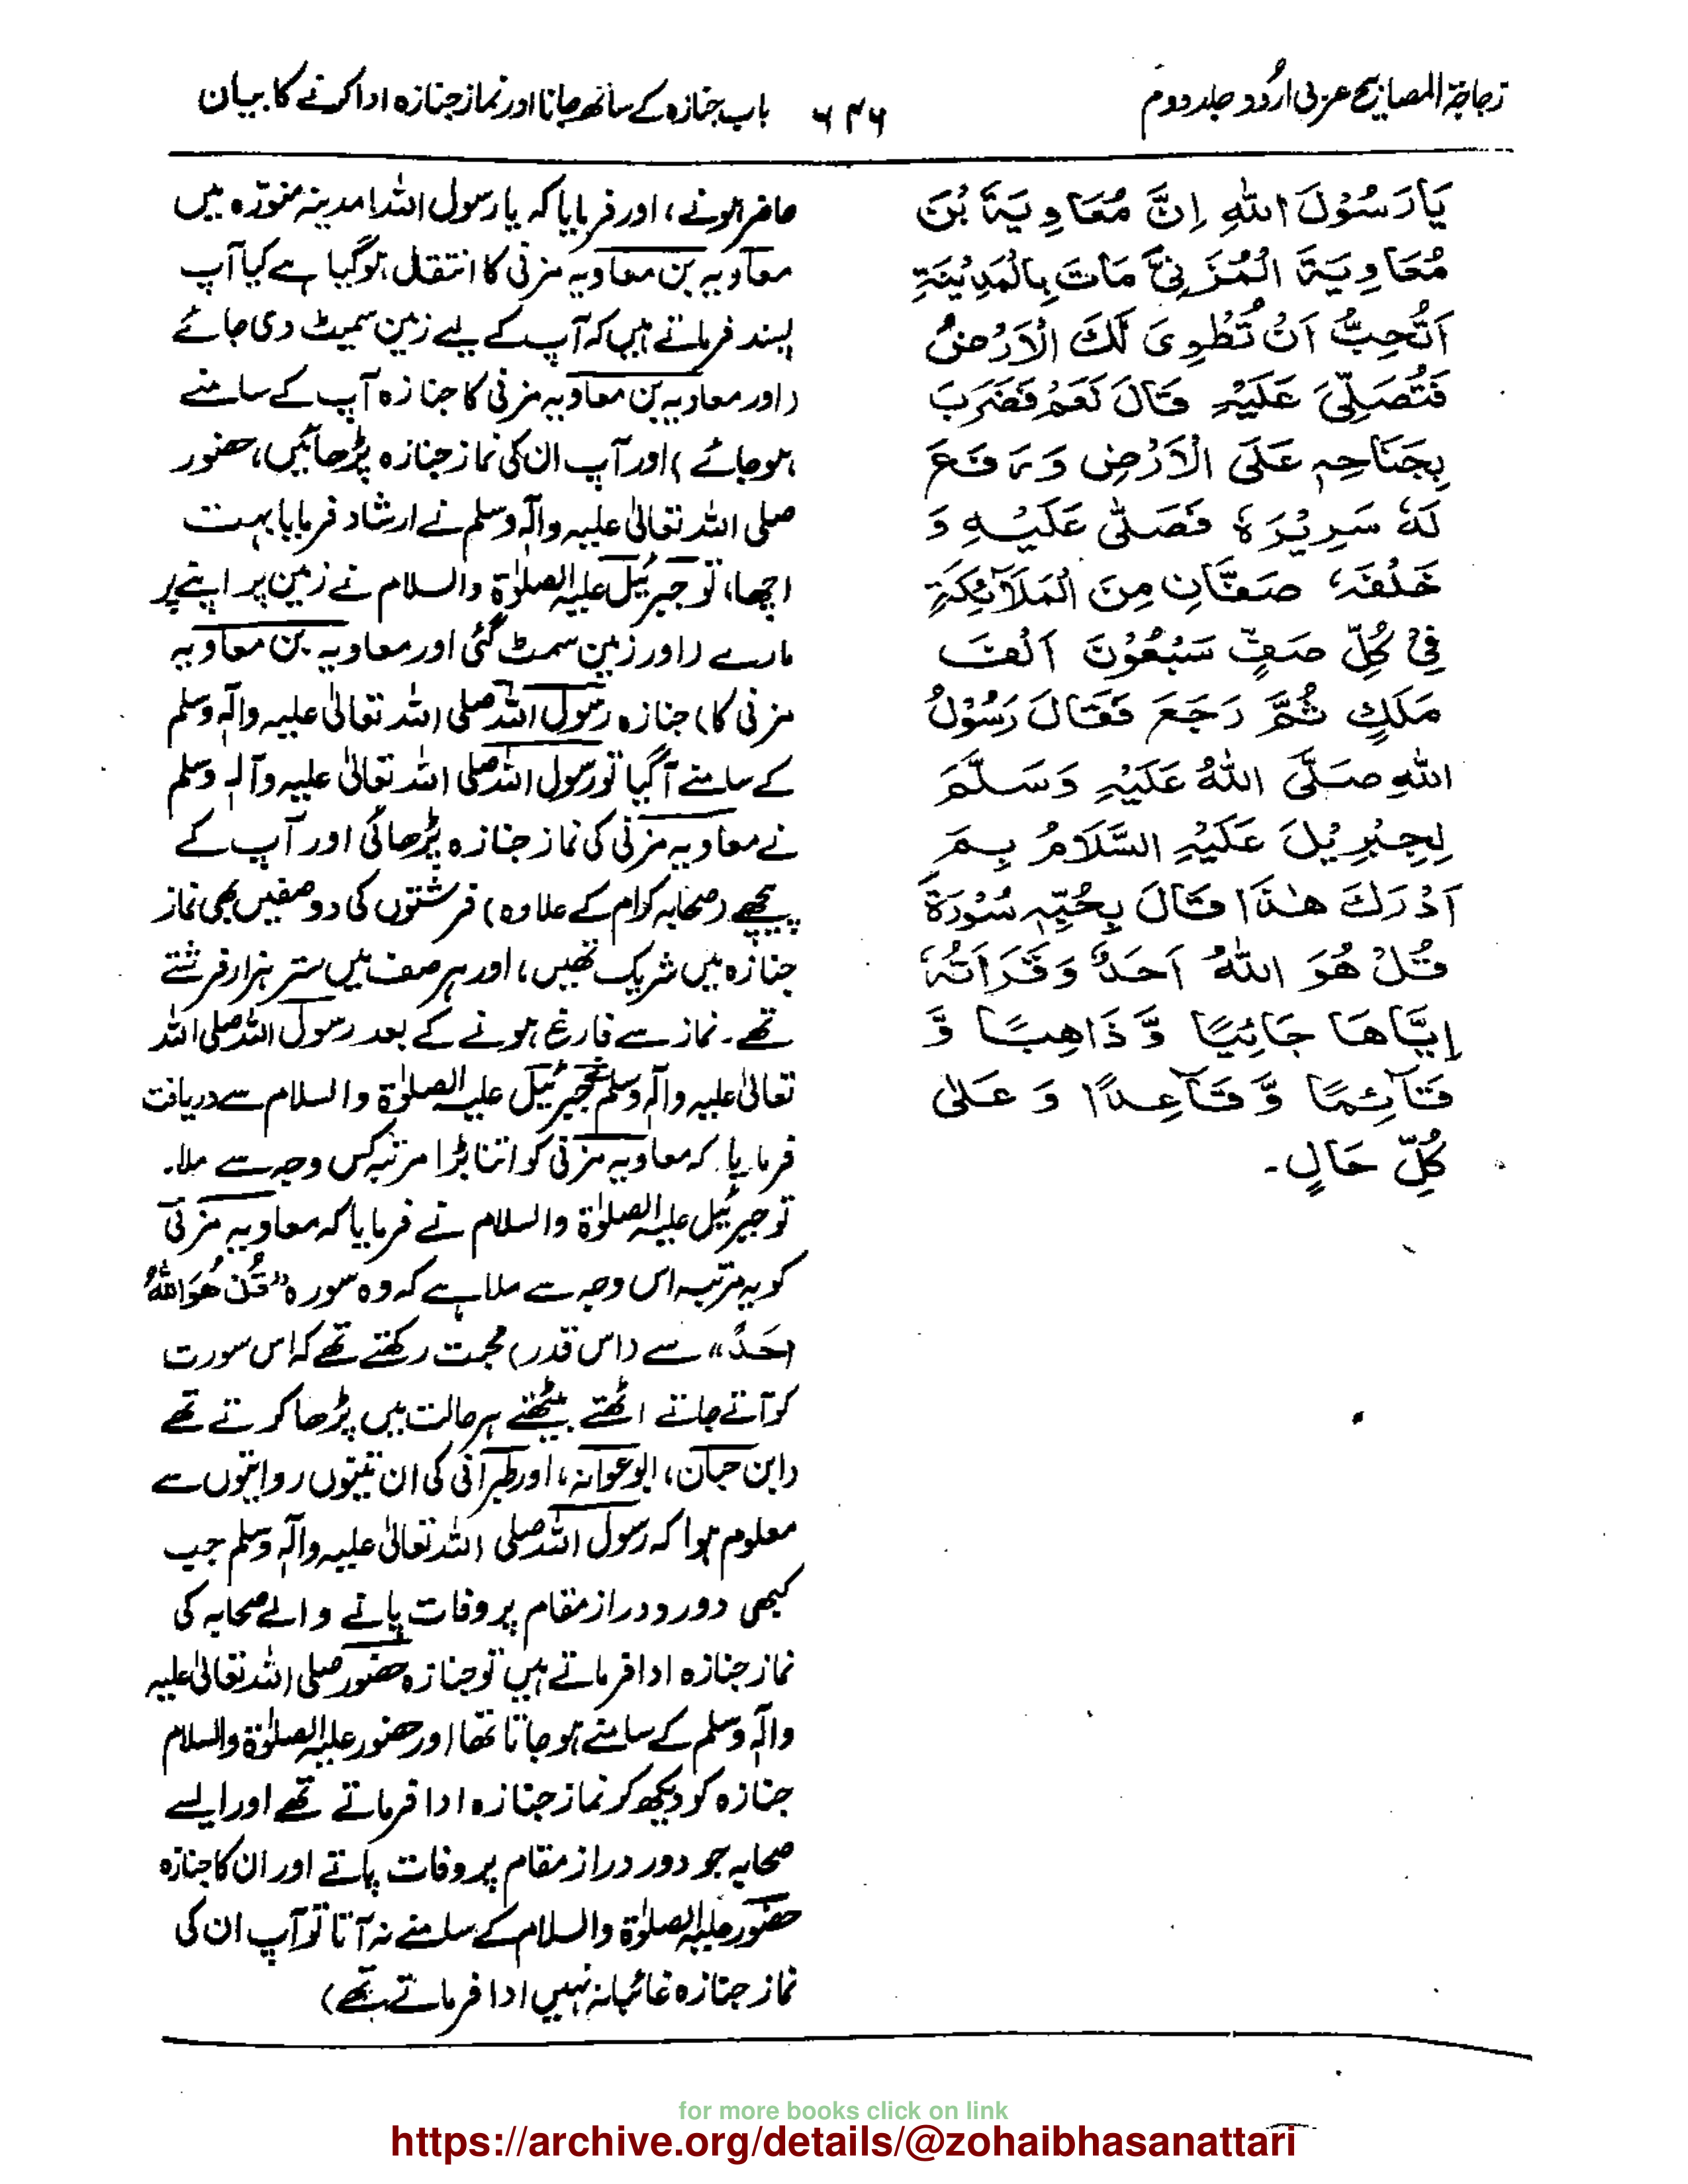 زجاجۃ المصابیح عربی اردو جلد دوم
۶۴۶
باب جنازہ کے ساتھ جانا اور نماز جنازہ ادا کرنے کا بیان
يَا رَسُوْلَ اللهِ اِنَّ مُعَاوِيَةَ بْنَ
مُعَاوِيَةَ الْمُزَنِيَّ مَاتَ بِالْمَدِيْنَةِ
اَتُحِبُّ اَنْ تُطْوِىَ لَكَ الْاَرْضُ
فَتُصَلِّيَ عَلَيْهِ قَالَ نَعَمْ فَضَرَبَ
بِجَنَاحِهٖ عَلَى الْاَرْضِ وَرَفَعَ
لَهٗ سَرِيْرَهٗ فَصَلّٰى عَلَيْهِ وَ
خَلْفَهٗ صَفَّانِ مِنَ الْمَلَآئِكَةِ
فِيْ كُلِّ صَفٍّ سَبْعُوْنَ اَلْفَ
مَلَكٍ ثُمَّ رَجَعَ فَقَالَ رَسُوْلُ
اللهِ صَلَّى اللهُ عَلَيْهِ وَسَلَّمَ
لِجِبْرِيْلَ عَلَيْهِ السَّلَامُ بِمَ
اَدْرَكَ هٰذَا قَالَ بِحُبِّهٖ سُوْرَةَ
قُلْ هُوَ اللهُ اَحَدٌ وَقَرَاَتُهٗ
اِيَّاهَا جَائِيًا وَّ ذَاهِبًا وَّ
قَآئِمًا وَّ قَآعِدًا وَ عَلىٰ
كُلِّ حَالٍ۔
حاضر ہوئے، اور فرمایا کہ یا رسول اللہ! مدینہ منورہ میں
معاویہ بن معاویہ مزنی کا انتقال ہوگیا ہے کیا آپ
پسند فرماتے ہیں کہ آپ کے لیے زمین سمیٹ دی جائے
(اور معاویہ بن معاویہ مزنی کا جنازہ آپ کے سامنے
ہوجائے) اور آپ ان کی نماز جنازہ پڑھائیں، حضور
صلی اللہ تعالیٰ علیہ وآلہٖ وسلم نے ارشاد فرمایا بہت
اچھا، تو جبرئیل علیہ الصلوٰۃ والسلام نے زمین پر اپنے پر
مارے (اور زمین سمٹ گئی اور معاویہ بن معاویہ
مزنی کا) جنازہ رسول اللہ صلی اللہ تعالیٰ علیہ وآلہٖ وسلم
کے سامنے آگیا تو رسول اللہ صلی اللہ تعالیٰ علیہ وآلہٖ وسلم
نے معاویہ مزنی کی نماز جنازہ پڑھائی اور آپ کے
پیچھے (صحابہ کرام کے علاوہ) فرشتوں کی دو صفیں بھی نماز
جنازہ میں شریک تھیں، اور ہر صف میں ستر ہزار فرشتے
تھے۔ نماز سے فارغ ہونے کے بعد رسول اللہ صلی اللہ
تعالیٰ علیہ وآلہٖ وسلم نے جبرئیل علیہ الصلوٰۃ والسلام سے دریافت
فرمایا کہ معاویہ مزنی کو اتنا بڑا مرتبہ کس وجہ سے ملا۔
تو جبرئیل علیہ الصلوٰۃ والسلام نے فرمایا کہ معاویہ مزنی
کو یہ مرتبہ اس وجہ سے ملا ہے کہ وہ سورہ ”قُلْ هُوَ اللهُ
اَحَدٌ“ سے (اس قدر) محبت رکھتے تھے کہ اس سورت
کو آتے جاتے اٹھتے بیٹھتے ہر حالت میں پڑھا کرتے تھے
(ابن حبان، ابوعوانہ، اور طبرانی کی ان تینوں روایتوں سے
معلوم ہوا کہ رسول اللہ صلی اللہ تعالیٰ علیہ وآلہٖ وسلم جب
کبھی دور و دراز مقام پر وفات پانے والے صحابہ کی
نماز جنازہ ادا فرماتے ہیں تو جنازہ حضور صلی اللہ تعالیٰ علیہ
وآلہٖ وسلم کے سامنے ہوجاتا تھا اور حضور علیہ الصلوٰۃ والسلام
جنازہ کو دیکھ کر نماز جنازہ ادا فرماتے تھے اور ایسے
صحابہ جو دور دراز مقام پر وفات پاتے اور ان کا جنازہ
حضور علیہ الصلوٰۃ والسلام کے سامنے نہ آتا تو آپ ان کی
نماز جنازہ غائبانہ نہیں ادا فرماتے تھے)
for more books click on link
https://archive.org/details/@zohaibhasanattari